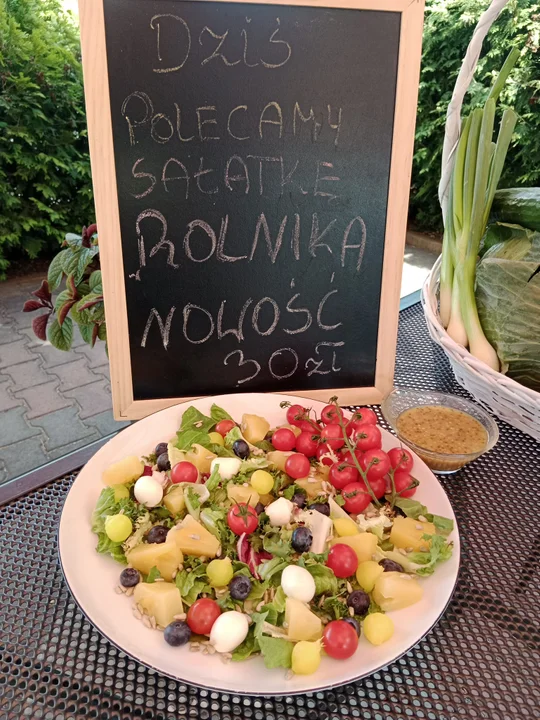 DZIŚ
POLECAMY
SAŁATKĘ
ROLNIKA
NOWOŚĆ
30 zł